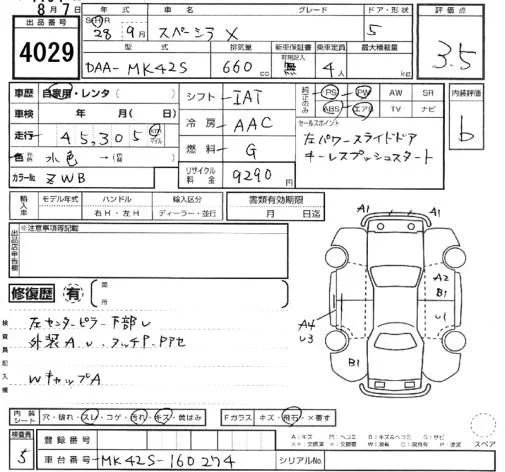 8月7日
出品番号 4029
年式 車名 グレード ドア・形状
S H R 28年 9月 スペーシア X 5
型式 排気量 新車保証書 有無記入 乗車定員 最大積載量
DAA-MK42S 660 cc 無 4人 kg
評価点 3.5
車歴 自家用・レンタ( )
車検 年 月( 日)
走行 45,305 km マイル
色 水色 →( )
カラーNo ZWB
シフト IAT
冷房 AAC
燃料 G
リサイクル料金 9290円
純正のみ PS PW AW SR
ABS エアB TV ナビ
セールスポイント
左パワースライドドア
キーレスプッシュスタート
内装評価 b
輸入車 モデル年式 ハンドル 輸入区分
年 右H・左H ディーラー・並行
書類有効期限
月 日迄
出品店申告欄 ※注意事項等記載
修復歴 有
検査員記入欄
左センターピラー下部U
外装A U
WキャップA
A1 A1
A2
B1
U1
A4
U3
B1
内装シート 穴・破れ・スレ・コゲ・汚れ・キズ・黄ばみ
Fガラス キズ・飛石・×要す
スペア
検査員 5
登録番号
車台番号 MK42S-160274 シリアルNo.